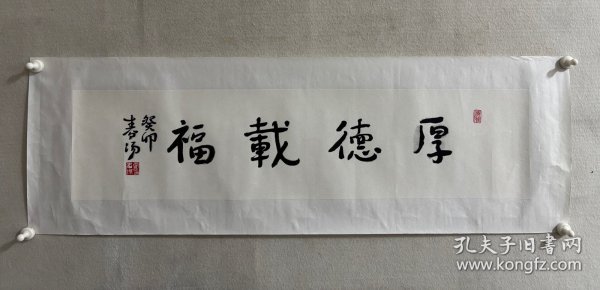 厚德載福
癸卯
春陽
孔夫子旧書网
www.kongfz.com